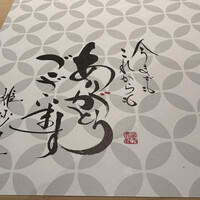 今までも
これからも
ありがとう
ござい寿